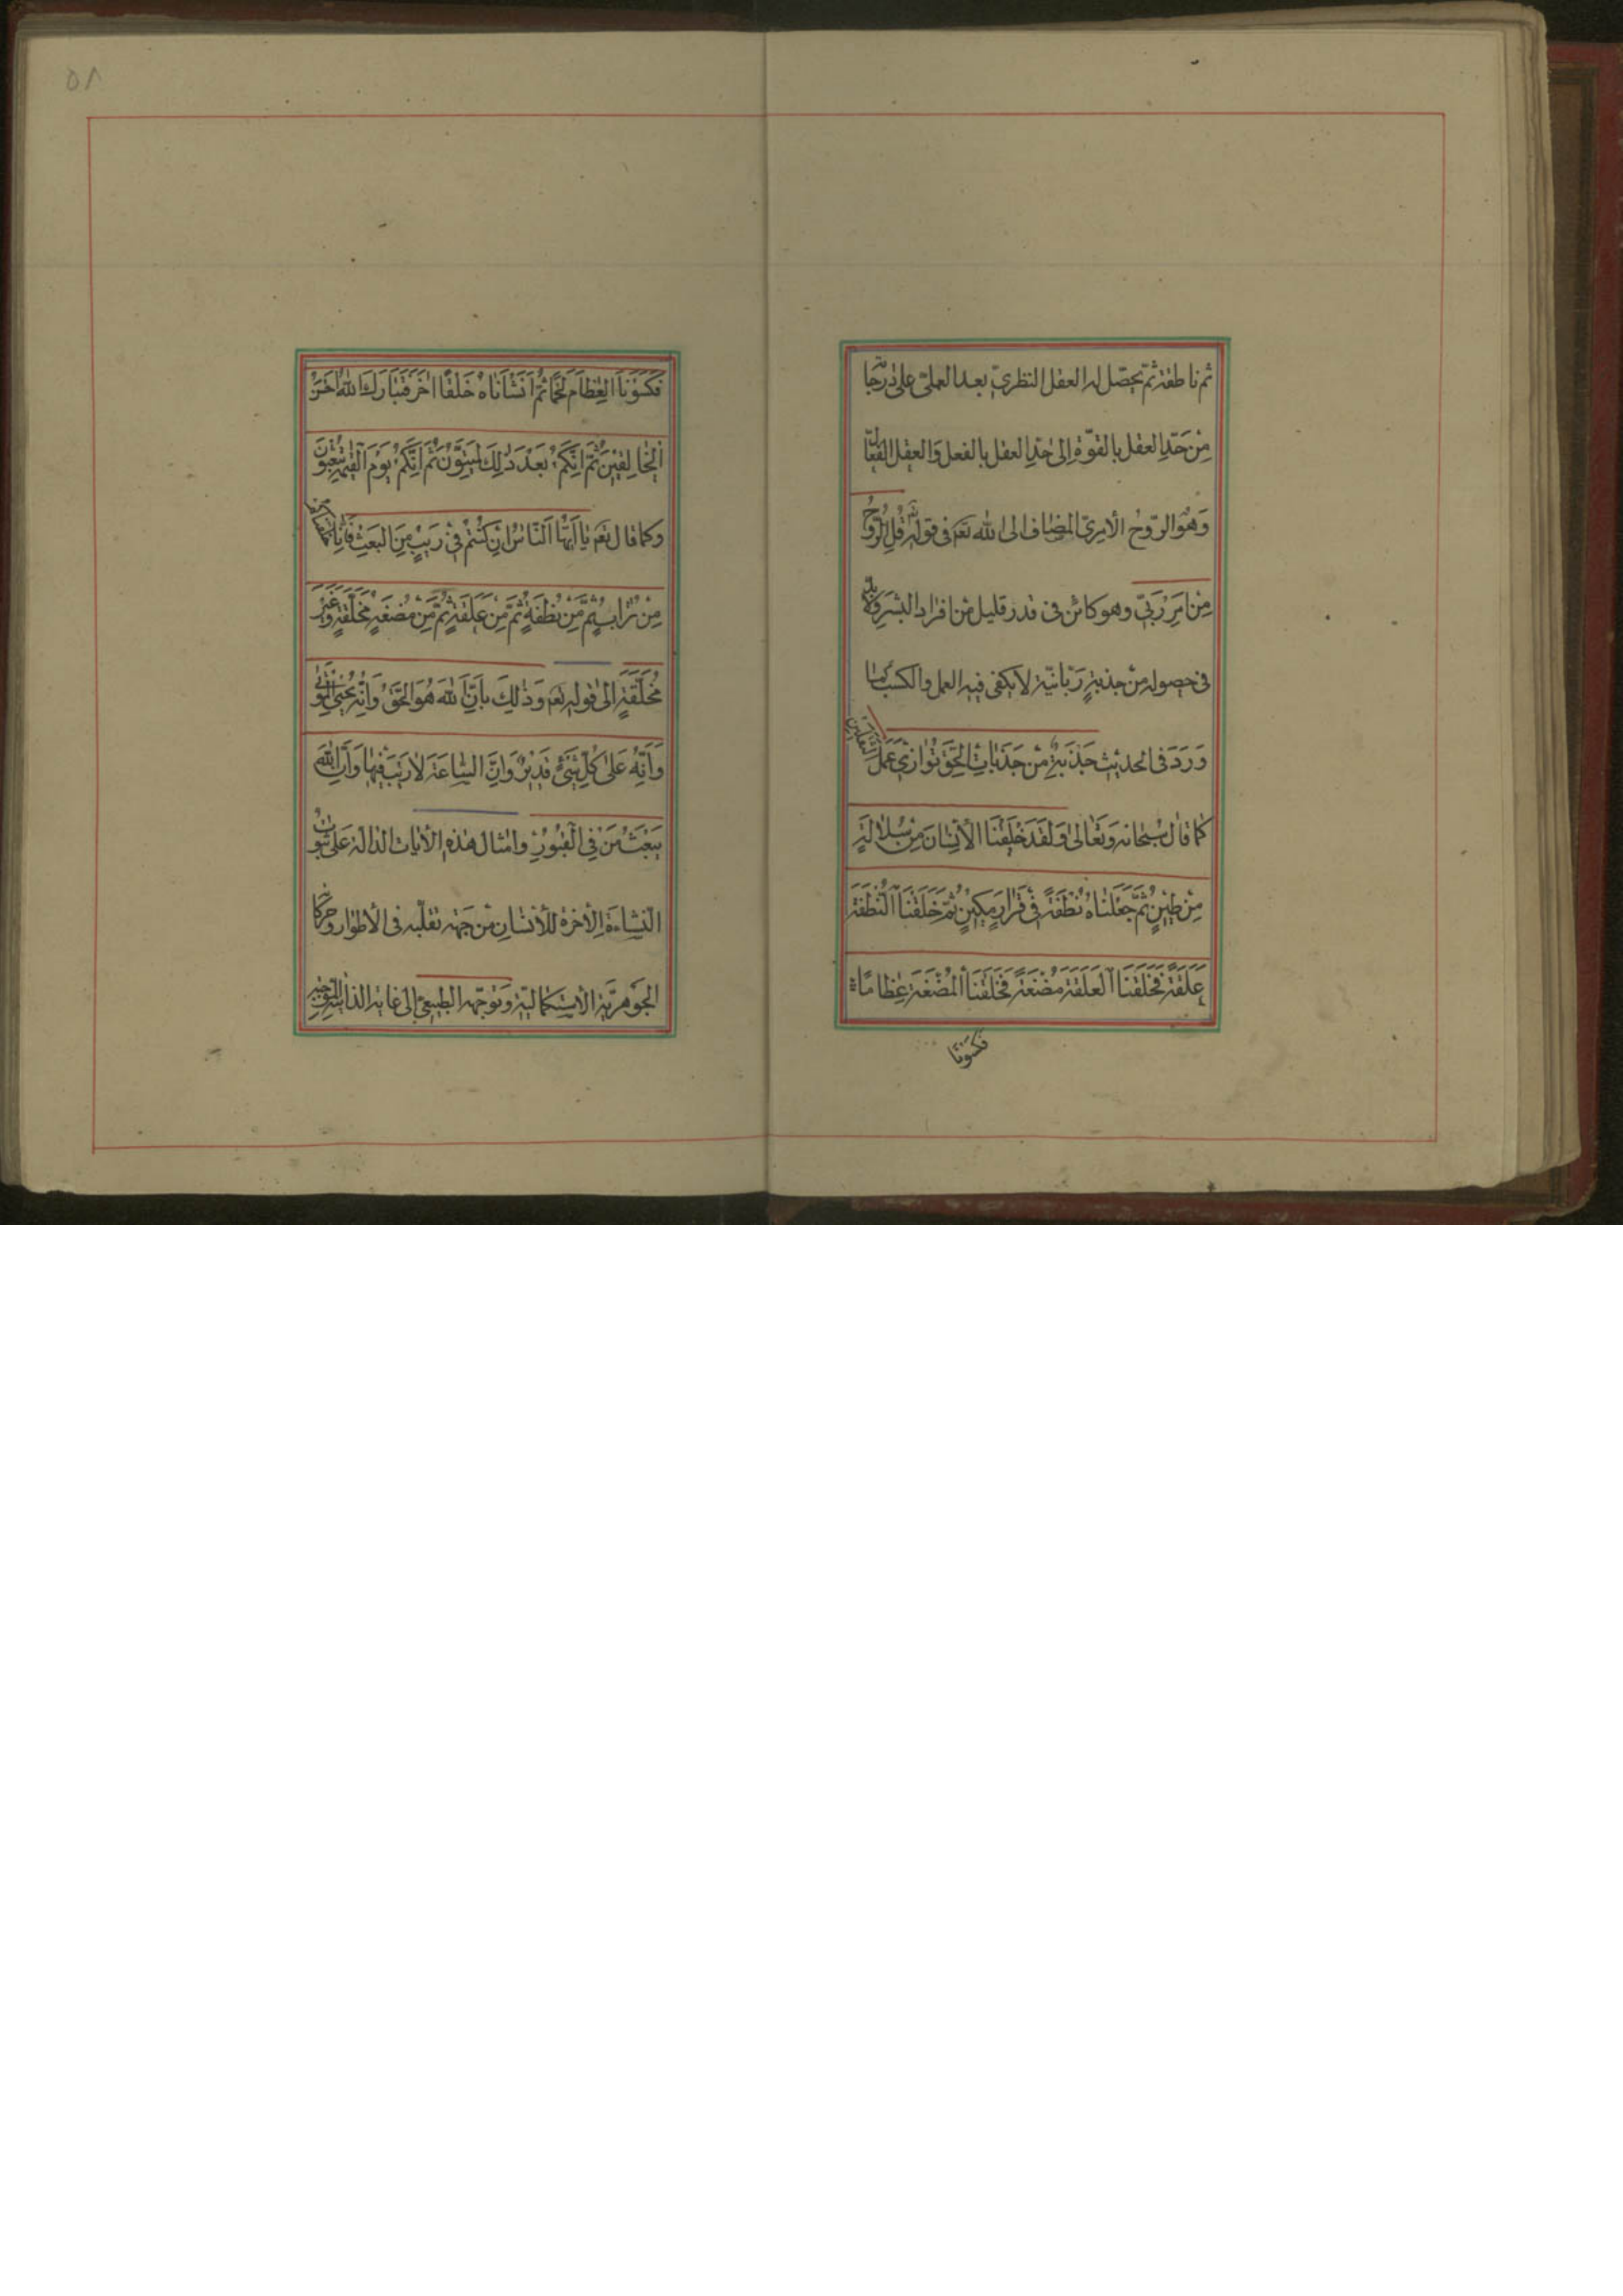 ثم ناطقة ثمّ يحصّل له العقل النظريّ بعد العمليّ على درجاته
مِن حَدّ العقل بالقوّة اِلىٰ حدّ العقل بالفعل وَالعقل الفعّال
وَهُوَ الروّحُ الأمِريّ المضاف الى الله تعۤ فى قوله قُلِ الرُّوحُ
مِنْ اَمِرِ رَبّى وهو كائن فى قدر قليل من افراد البشر وَلابدّ
فى حصوله من جذبةٍ رَبّانيّة لا يكفى فيه العمل والكسب كما
وَرَدَ فى الحديث جَذبةٌ مِن جَذَباتِ الحَقّ تُوازي عَمَلَ الثقلين
كما قال سُبحانه وَتَعٰالىٰ وَلَقَد خَلَقْنَا الأنْسٰانَ مِن سُلٰالَةٍ
مِنْ طينٍ ثُمَّ جَعَلنٰاهُ نُطْفَةً فى قَرٰارٍ مَكينٍ ثُمَّ خَلَقْنَا النُّطْفَةَ
عَلَقَةً فَخَلَقْنَا العَلَقَةَ مُضْغَةً فَخَلَقْنَا المُضْغَةَ عِظٰامًا
فكسَوْنا
٥٨
فَكَسَوْنَا العِظٰامَ لَحْمًا ثُمَّ اَنْشَأنٰاهُ خَلْقًا اٰخَرَ فَتَبٰارَكَ اللهُ اَحْسَنُ
الْخٰالِقينَ ثُمَّ اِنَّكُمْ بَعْدَ ذٰلِكَ لَمَيِّتُونَ ثُمَّ اِنَّكُمْ يَوْمَ القِيٰمَةِ تُبْعَثُونَ
وكما قال تعۤ يٰا اَيُّهَا النّٰاسُ اِنْ كُنْتُمْ فى رَيْبٍ مِنَ البَعْثِ فَاِنّٰا خَلَقْنٰاكُمْ
مِنْ تُرٰابٍ ثُمَّ مِنْ نُطْفَةٍ ثُمَّ مِنْ عَلَقَةٍ ثُمَّ مِنْ مُضْغَةٍ مُخَلَّقَةٍ وَغَيْرِ
مُخَلَّقَةٍ اِلىٰ قوله تعۤ وَذٰلِكَ بِاَنَّ اللهَ هُوَ الحَقُّ وَاَنَّهُ يُحْيِى المَوْتىٰ
وَاَنَّهُ عَلىٰ كُلِّ شَىْءٍ قَديرٌ وَاَنَّ السّٰاعَةَ لاٰرَيْبَ فيهٰا وَاَنَّ اللهَ
يَبْعَثُ مَنْ فِى القُبُورِ وامثال هٰذه الأيات الدالة عَلىٰ ثبُوت
النّشاءَة الأخرة للأنسٰانِ من جهة تقلّبه فى الأطوار وَحركاته
الجَوْهريّة الأستكماليّة وَتوجّهه الطبيعىّ اِلىٰ غاية الذاتية